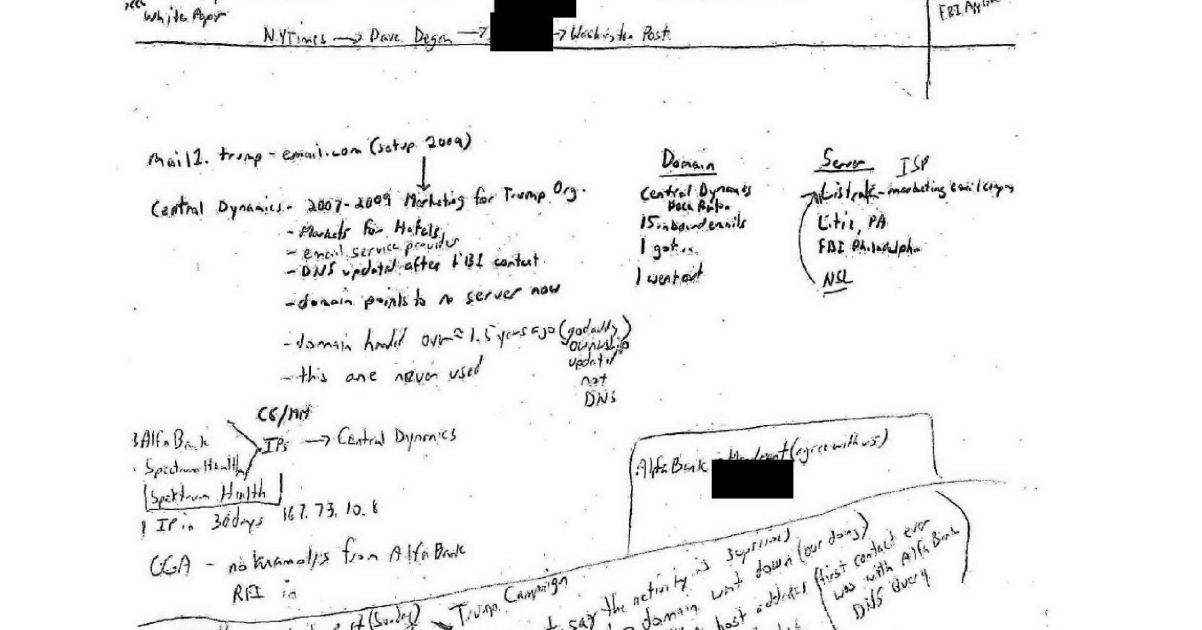 White Paper
NYTimes → Dave Dagon → → Washington Post.
mail1. trump-email.com (setup 2009)
Central Dynamics - 2007-2009 Marketing for Trump Org.
- Markets for Hotels,
- email service provider
- DNS updated after FBI contact.
- domain points to no server now
- domain handed over ≈ 1.5 years ago (godaddy)
ownership
updated
not
DNS
- this one never used
Domain
Central Dynamics
Boca Raton
15 inbound emails
1 got
1 went out
Server ISP
Listrak - marketing email
Litiz, PA
FBI Philadelphia
NSL
3 Alfa Bank
Spectrum Health
Spektrum Health
1 IP in 30 days 167.73.10.8
IPs → Central Dynamics
CGA - no from Alfa Bank
RFI in
Alfa Bank - (agree with us)
(Sunday)
Trump Campaign
say the activity is
domain went down (our doing)
host address (first contact ever
was with Alfa Bank
DNS Query